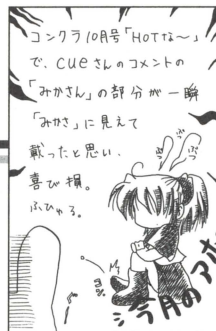 コンクラ10月号「HOTな〜」
で、cueさんのコメントの
「みかさん」の部分が一瞬
「みかさ」に見えて
載ったと思い、
喜び損。
ふひゃる。
ぶつ
ぶつ
今月のアホ